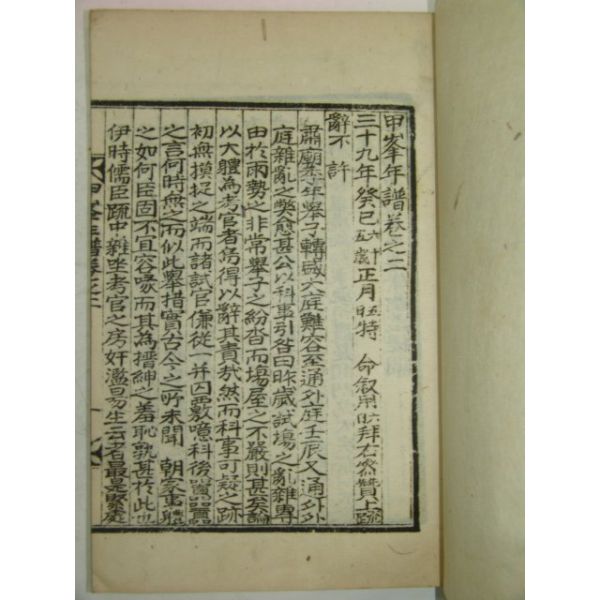 甲峯年譜卷之二
三十九年癸巳六十五歲正月旺特 命叙用旺拜右參贊上疏
辭不 許
肅廟季年擧子轉國大庭難容至通外庭壬辰又通外外
庭雜亂之獘愈甚公以科事引咎曰昨歲試場之亂雜專
由於雨勢之非常擧子之紛沓而場屋之不嚴則甚矣論
以大體為考官者烏得以辭其責哉然而科事可疑之跡
初無摸捉之端而諸試官傔從一并囚覈噫科後囂囂
之言何時無之而似此擧措實古今之所未聞 朝家事體
之如何臣固不宜容喙而其為搢紳之羞恥孰甚於此也
伊時儒臣疏中雜坐考官之房奸濫易生云者最是緊處